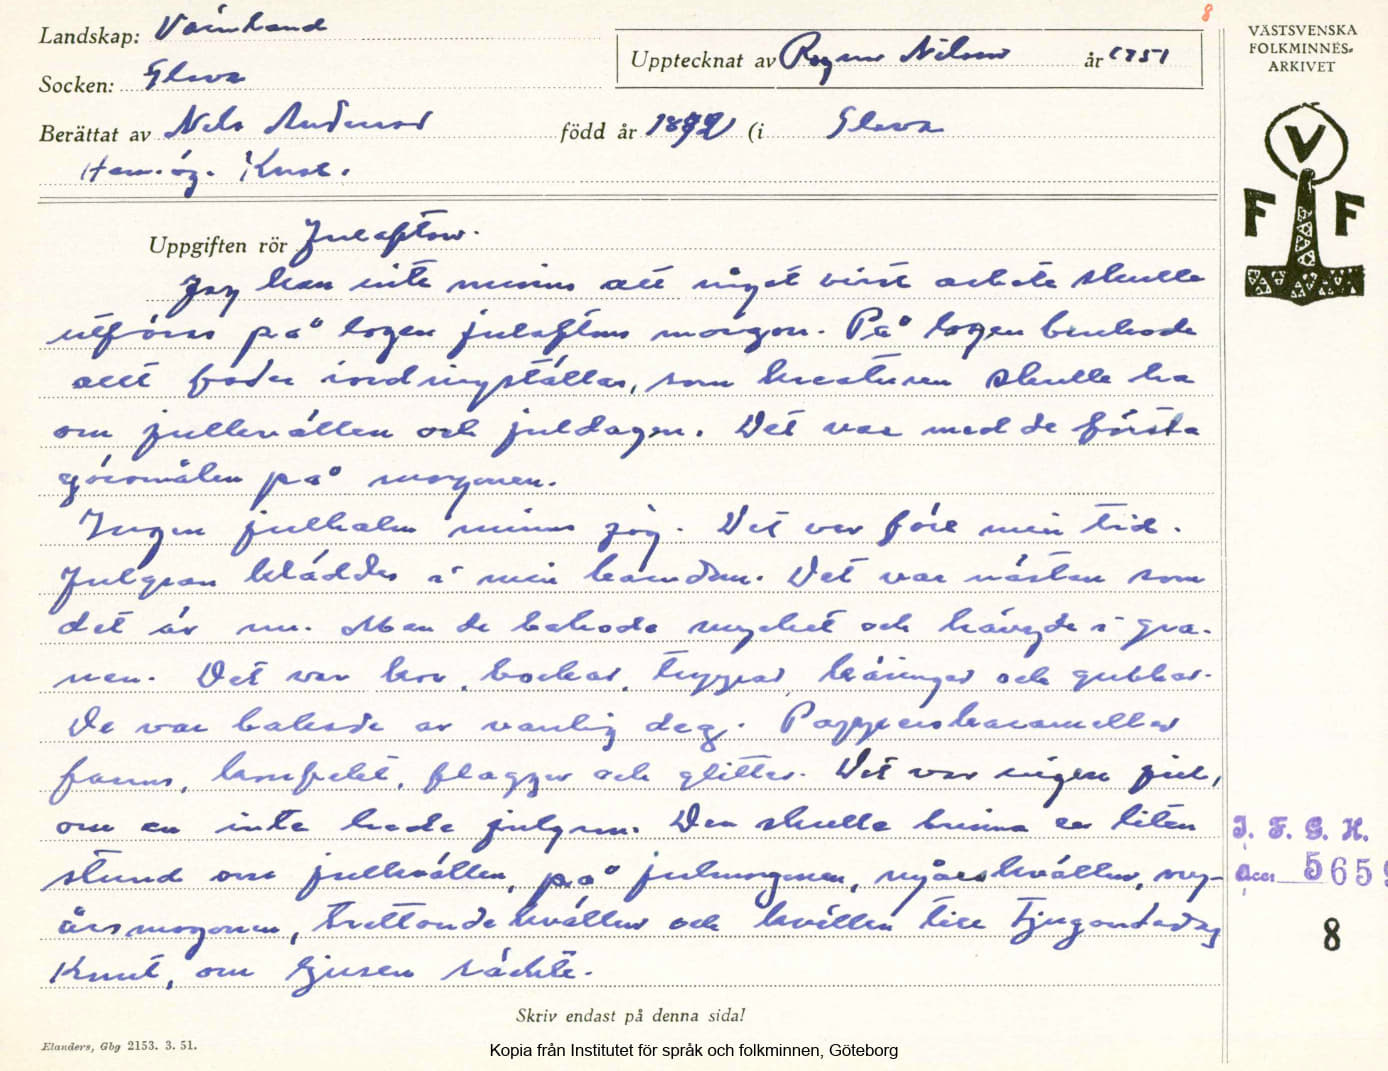 8
Landskap: Värmland
Socken: Glava
Upptecknat av Ragnar Nilsson år 1951
Berättat av Nels Anderson född år 1892 (i Glava
Hem.äg. Knut.
Uppgiften rör Julafton.
Jag kan inte minnas att något visst arbete skulle
utföras på logen julaftons morgon. På logen brukade
allt foder iordningställas, som kreaturen skulle ha
om julkvällen och juldagen. Det var med de första
göromålen på morgonen.
Ingen julhalm minns jag. Det var före min tid.
Julgran kläddes i min barndom. Det var nästan som
det är nu. Men de bakade mycket och hängde i gra-
nen. Det var kor, bockar, tuppar, käringar och gubbar.
De var bakade av vanlig deg. Papperskarameller
fanns, konfekt, flaggor och glitter. Det var ingen jul,
om en inte hade julgran. Den skulle brinna en liten
stund om julkvällen, på julmorgonen, nyårskvällen, ny-
årsmorgonen, trettondekvällen och kvällen till Tjugondedag
Knut, om ljusen räckte.
Skriv endast på denna sida!
Elanders, Gbg 2153. 3. 51.
Kopia från Institutet för språk och folkminnen, Göteborg
VÄSTSVENSKA
FOLKMINNES-
ARKIVET
V
F F
I. F. G. H.
Acc: 5659
8